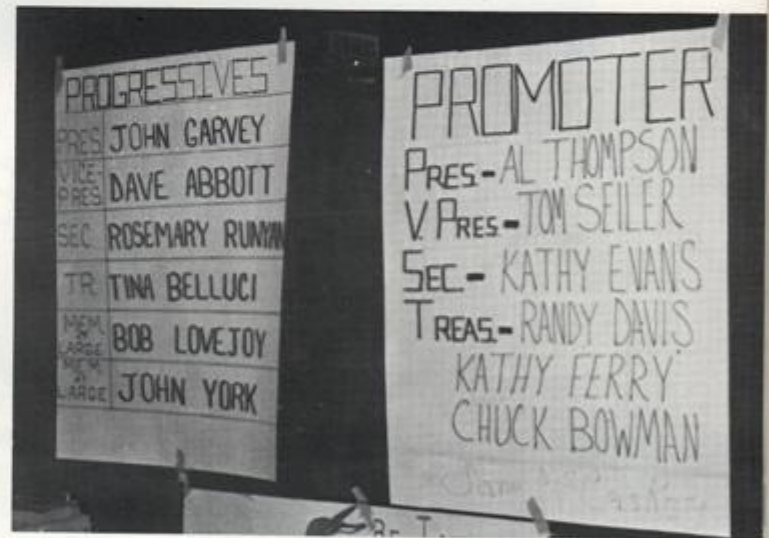 PROGRESSIVES
PRES. JOHN GARVEY
VICE-
PRES. DAVE ABBOTT
SEC ROSEMARY RUNYAN
TR. TINA BELLUCI
MEM.
AT
LARGE BOB LOVEJOY
MEM.
AT
LARGE JOHN YORK
PROMOTER
PRES.- AL THOMPSON
V. PRES.- TOM SEILER
SEC.- KATHY EVANS
TREAS.- RANDY DAVIS
KATHY FERRY
CHUCK BOWMAN